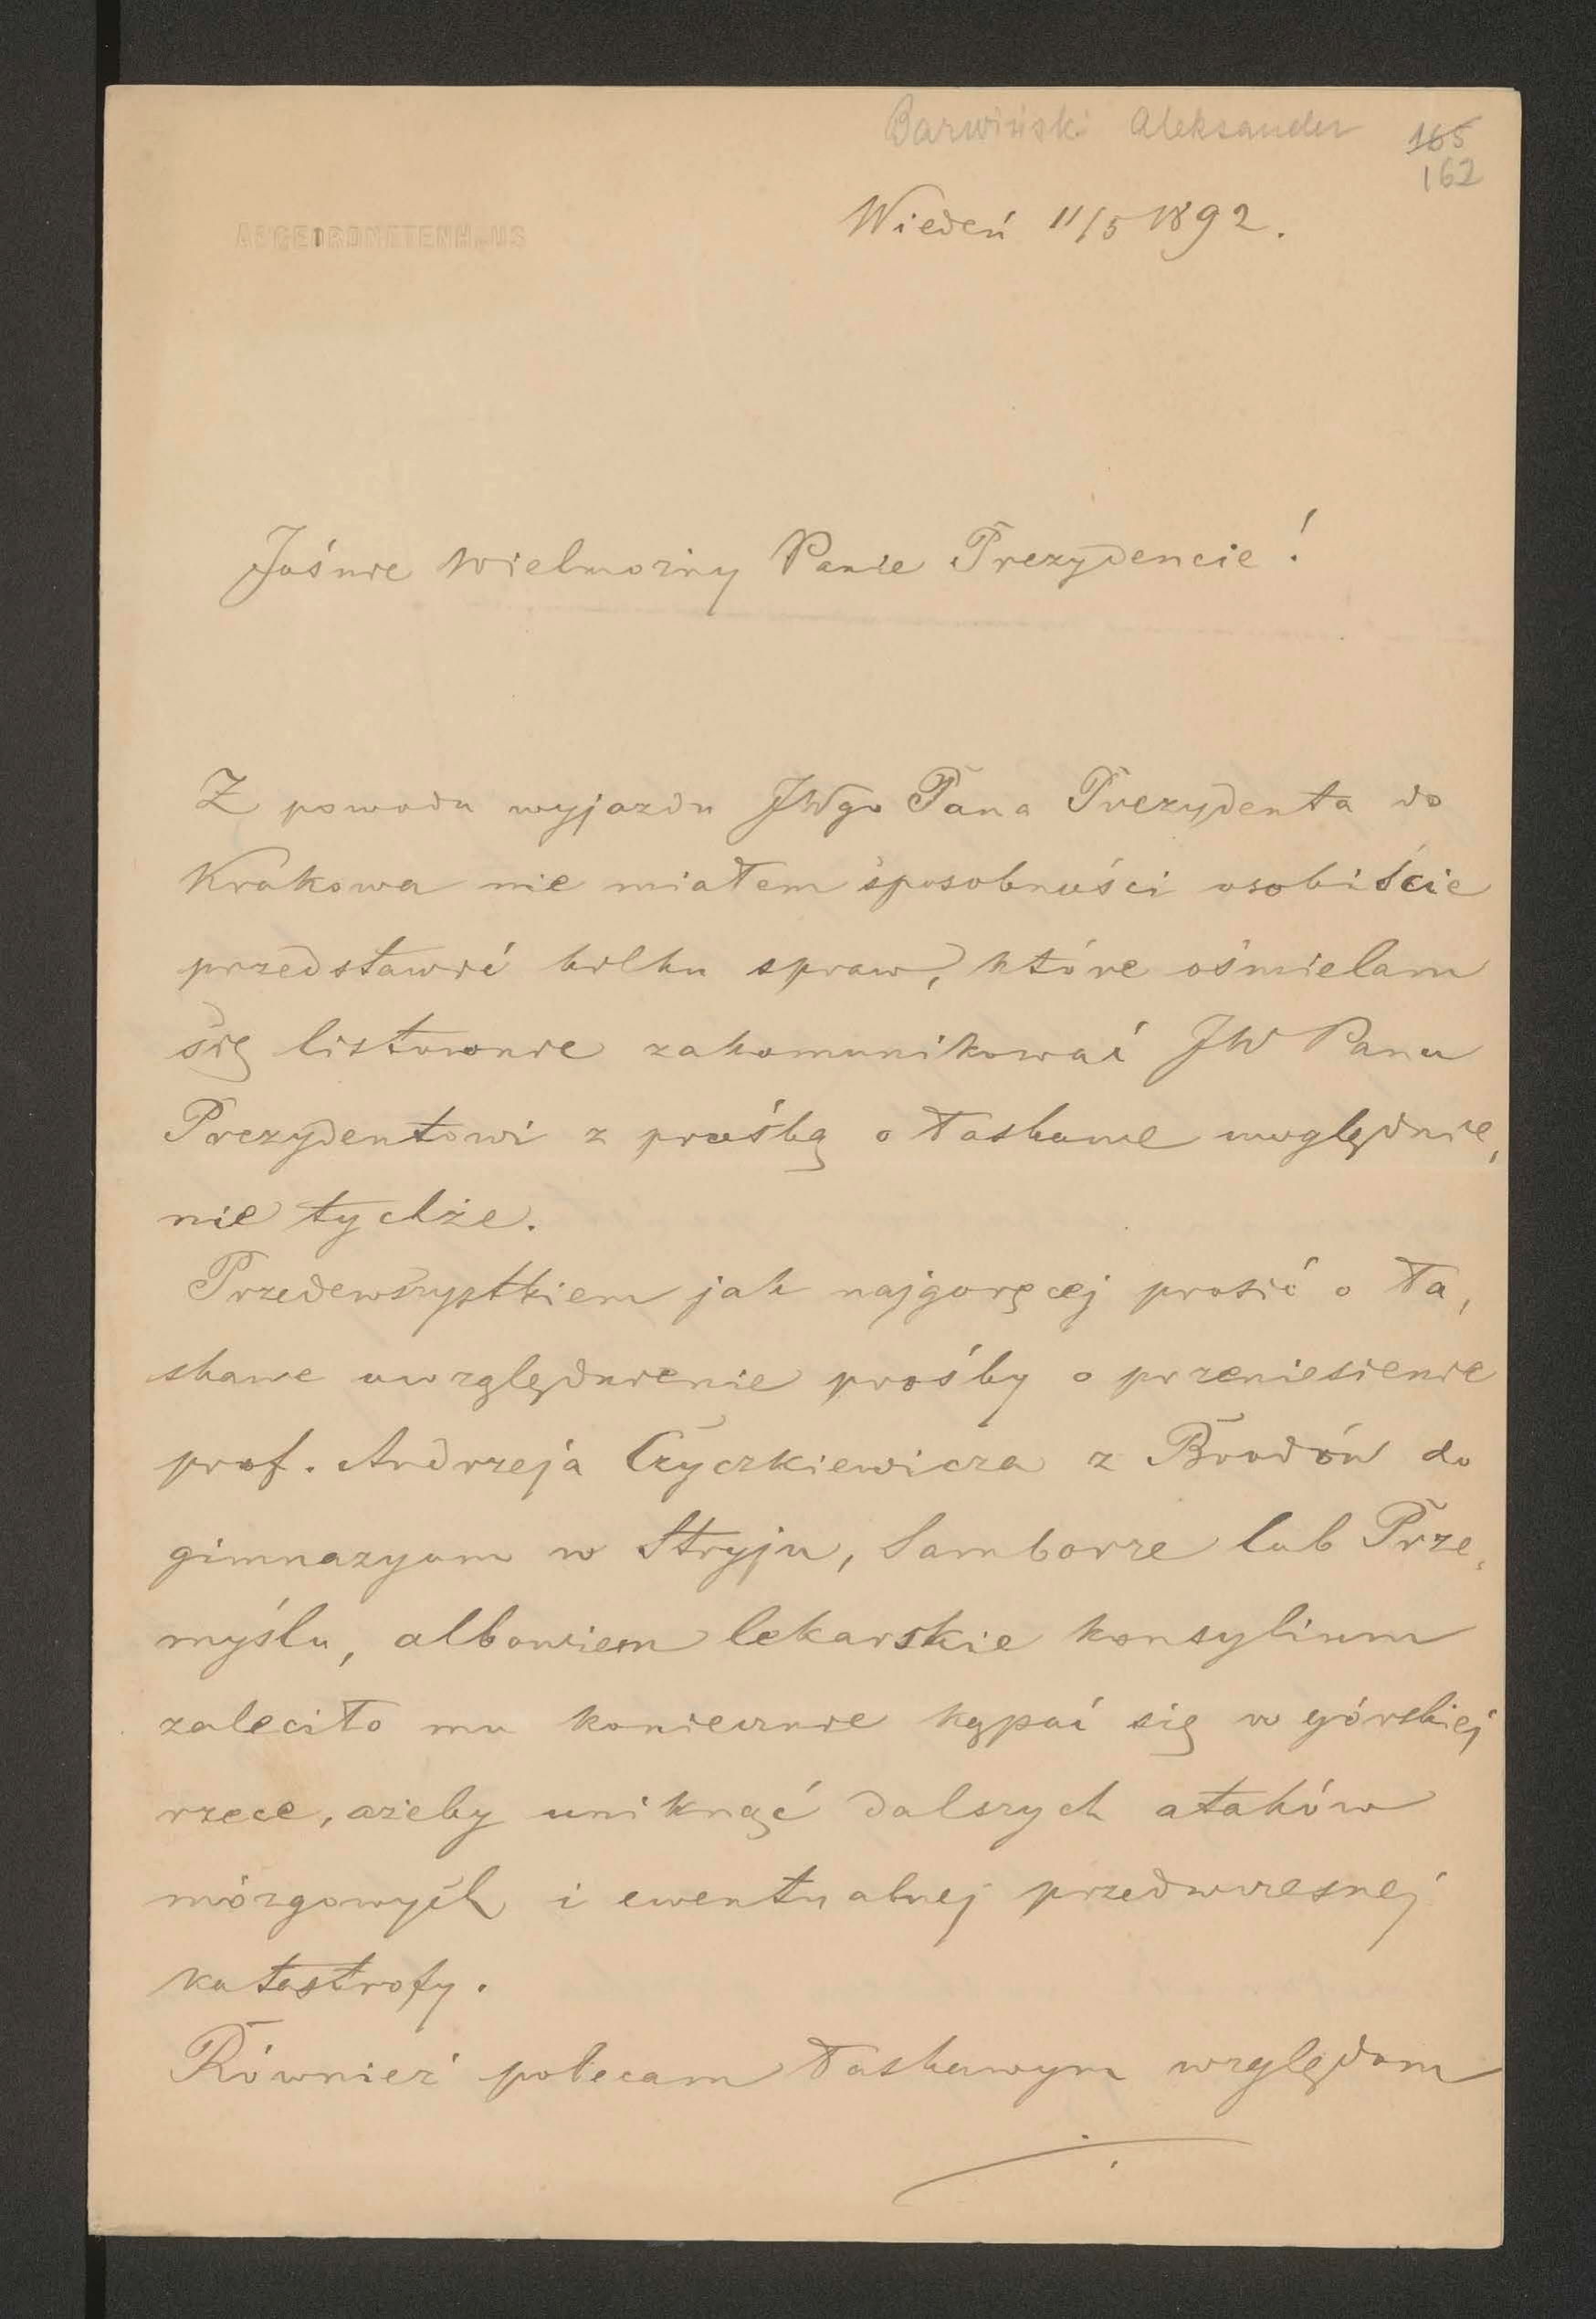 Barwiński Aleksander
165
162
ABGEORDNETENHAUS
Wiedeń 11/5 1892.
Jaśnie Wielmożny Panie Prezydencie!
Z powodu wyjazdu JWgo Pana Prezydenta do
Krakowa nie miałem sposobności osobiście
przedstawić kilku spraw, które ośmielam
się listownie zakomunikować JW Panu
Prezydentowi z prośbą o łaskawe uwględnie,
nie tychże.
Przedewszystkiem jak najgoręcej prosić o ła,
skawe uwzględnienie prośby o przeniesienie
prof. Andrzeja Czyczkiewicza z Brodów do
gimnazyum w Stryju, Samborze lub Prze,
myślu, albowiem lekarskie konsylium
zaleciło mu koniecznie kąpać się w górskiej
rzece, ażeby uniknąć dalszych ataków
mózgowych i ewentualnej przedwczesnej
katastrofy.
Również polecam łaskawym względom